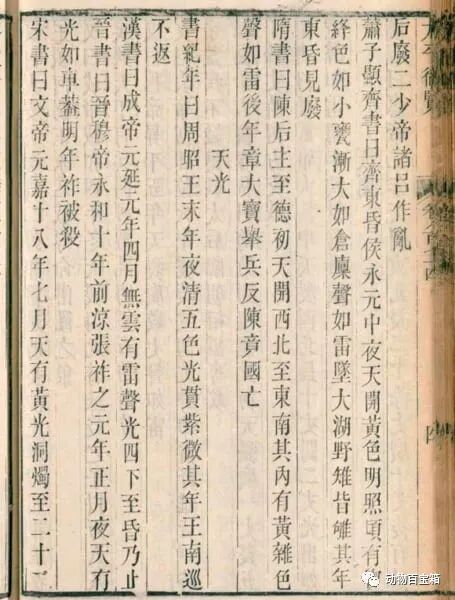 后廢二少帝諸呂作亂
蕭子顯齊書曰齊東昏侯永元中夜天開黃色明照頃有
絳色如小甕漸大如倉廩聲如雷墜大湖野雉皆雊其年
東昏見廢
隋書曰陳后主至德初天開西北至東南其內有黃雜色
聲如雷後年章大寶舉兵反陳竟國亡
天光
書紀年曰周昭王末年夜清五色光貫紫微其年王南巡
不返
漢書曰成帝元延元年四月無雲有雷聲光四下至昏乃止
晉書曰晉穆帝永和十年前涼張祚之元年正月夜天有
光如車葢明年祚被殺
宋書曰文帝元嘉十八年七月天有黃光洞燭至二十二
动物百宝箱